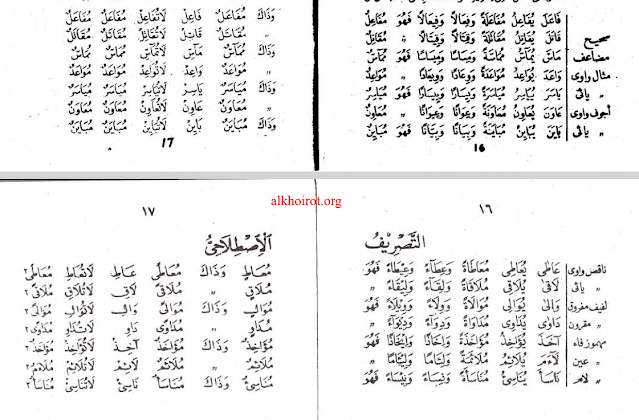 فَاعَلَ يُفَاعِلُ مُفَاعَلَةً وَفِعَالاً وَفِيْعَالاً فَهُوَ مُفَاعِلٌ
صحيح قَاتَلَ يُقَاتِلُ مُقَاتَلَةً وَقِتَالاً وَقِيْتَالاً " مُقَاتِلٌ
مضاعف مَاسَّ يُمَاسُّ مُمَاسَّةً وَمِسَاسًا وَمِيْسَاسًا فَهُوَ مُمَاسٌّ
مثال واوى وَاعَدَ يُوَاعِدُ مُوَاعَدَةً وَوِعَادًا وَوِيْعَادًا " مُوَاعِدٌ
" يائى يَاسَرَ يُيَاسِرُ مُيَاسَرَةً وَيِسَارًا وَيِيْسَارًا فَهُوَ مُيَاسِرٌ
أجوف واوى عَاوَنَ يُعَاوِنُ مُعَاوَنَةً وَعِوَانًا وَعِيْوَانًا " مُعَاوِنٌ
" يائى بَايَنَ يُبَايِنُ مُبَايَنَةً وَبِيَانًا وَبِيْيَانًا فَهُوَ مُبَايِنٌ
16
وَذَاكَ مُفَاعَلٌ فَاعِلْ لَاتُفَاعِلْ مُفَاعَلٌ مُفَاعَلٌ
" مُقَاتَلٌ قَاتِلْ لَاتُقَاتِلْ مُقَاتَلٌ مُقَاتَلٌ
وَذَاكَ مُمَاسٌّ مَاسِّ لَاتُمَاسِّ مُمَاسٌّ مُمَاسٌّ
" مُوَاعَدٌ وَاعِدْ لَاتُوَاعِدْ مُوَاعَدٌ مُوَاعَدٌ
وَذَاكَ مُيَاسَرٌ يَاسِرْ لَاتُيَاسِرْ مُيَاسَرٌ مُيَاسَرٌ
" مُعَاوَنٌ عَاوِنْ لَاتُعَاوِنْ مُعَاوَنٌ مُعَاوَنٌ
وَذَاكَ مُبَايَنٌ بَايِنْ لَاتُبَايِنْ مُبَايَنٌ مُبَايَنٌ
17
alkhoirot.org
١٦
التَّصْرِيْفُ
ناقص واوى عَاطَى يُعَاطِى مُعَاطَاةً وَعِطَاءً وَعِيْطَاءً فَهُوَ
" يائى لَاقَى يُلَاقِى مُلَاقَاةً وَلِقَاءً وَلِيْقَاءً "
لفيف مفروق وَالَى يُوَالِى مُوَالَاةً وَوِلَاءً وَوِيْلَاءً فَهُوَ
" مقرون دَاوَى يُدَاوِى مُدَاوَاةً وَدِوَاءً وَدِيْوَاءً "
مهموز فاء آخَذَ يُؤَاخِذُ مُؤَاخَذَةً وَإِخَاذًا وَإِيْخَاذًا فَهُوَ
" عين لَاءَمَ يُلَائِمُ مُلَائَمَةً وَلِئَامًا وَلِيْئَامًا "
" لام نَاسَأَ يُنَاسِئُ مُنَاسَأَةً وَنِسَاءً وَنِيْسَاءً فَهُوَ
١٧
اَلْاِصْطِلَاحِىُّ
مُعَاطٍ وَذَاكَ مُعَاطًى عَاطِ لَاتُعَاطِ مُعَاطًى ٢
مُلَاقٍ " مُلَاقًى لَاقِ لَاتُلَاقِ مُلَاقًى ٢
مُوَالٍ وَذَاكَ مُوَالًى وَالِ لَاتُوَالِ مُوَالًى ٢
مُدَاوٍ " مُدَاوًى دَاوِ لَاتُدَاوِ مُدَاوًى ٢
مُؤَاخِذٌ وَذَاكَ مُؤَاخَذٌ آخِذْ لَاتُؤَاخِذْ مُؤَاخَذٌ ٢
مُلَائِمٌ " مُلَاءَمٌ لَائِمْ لَاتُلَائِمْ مُلَاءَمٌ ٢
مُنَاسِئٌ وَذَاكَ مُنَاسَأٌ نَاسِئْ لَاتُنَاسِئْ مُنَاسَأٌ ٢